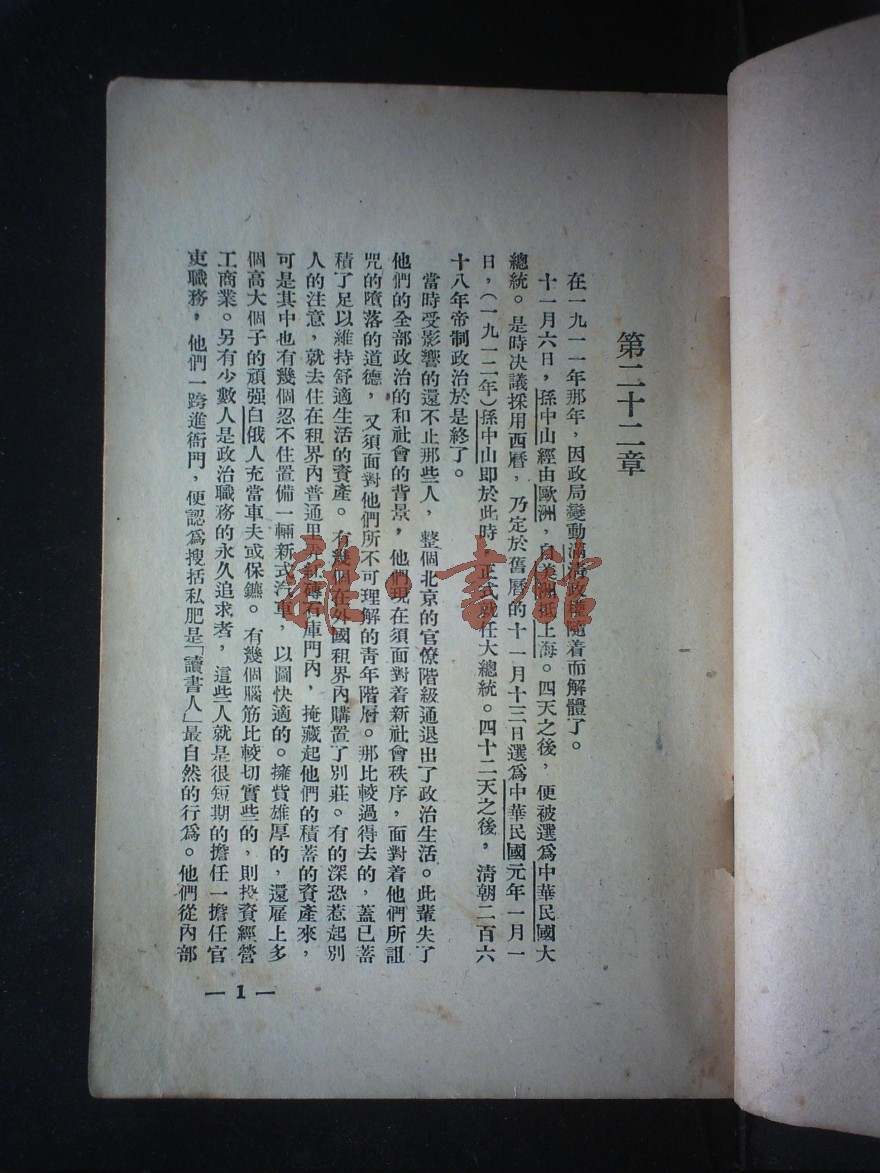 第二十二章
在一九一一年那年，因政局變動滿清政權隨着而解體了。
十一月六日，孫中山經由歐洲，自美洲抵上海。四天之後，便被選爲中華民國大
總統。是時决議採用西曆，乃定於舊曆的十一月十三日選爲中華民國元年一月一
日，（一九一二年）孫中山即於此時，正式就任大總統。四十二天之後，清朝二百六
十八年帝制政治於是終了。
當時受影響的還不止那些人，整個北京的官僚階級通退出了政治生活。此輩失了
他們的全部政治的和社會的背景，他們現在須面對着新社會秩序，面對着他們所詛
咒的墮落的道德，又須面對他們所不可理解的青年階層。那比較過得去的，蓋已蓄
積了足以維持舒適生活的資產。有幾個在外國租界內購置了別莊。有的深恐惹起別
人的注意，就去住在租界內普通里弄紅磚石庫門內，掩藏起他們的積蓄的資產來，
可是其中也有幾個忍不住置備一輛新式汽車，以圖快適的。擁貲雄厚的，還雇上多
個高大個子的頑强白俄人充當車夫或保鑣。有幾個腦筋比較切實些的，則投資經營
工商業。另有少數人是政治職務的永久追求者，這些人就是很短期的擔任一擔任官
吏職務，他們一跨進衙門，便認爲搜括私肥是「讀書人」最自然的行爲。他們從內部
— 1 —
雜·書館